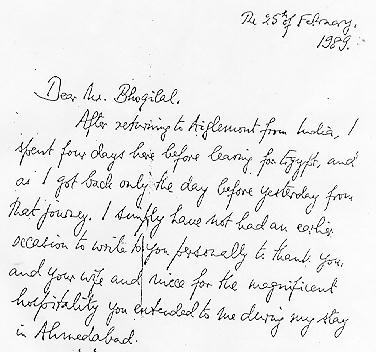 The 25th of February.
1989.
Dear Mr. Bhogilal.
After returning to Aiglemont from India, I
spent four days here before leaving for Egypt, and
as I got back only the day before yesterday from
that journey. I simply have not had an earlier
occasion to write to you personally to thank you
and your wife and niece for the magnificent
hospitality you extended to me during my stay
in Ahmedabad.